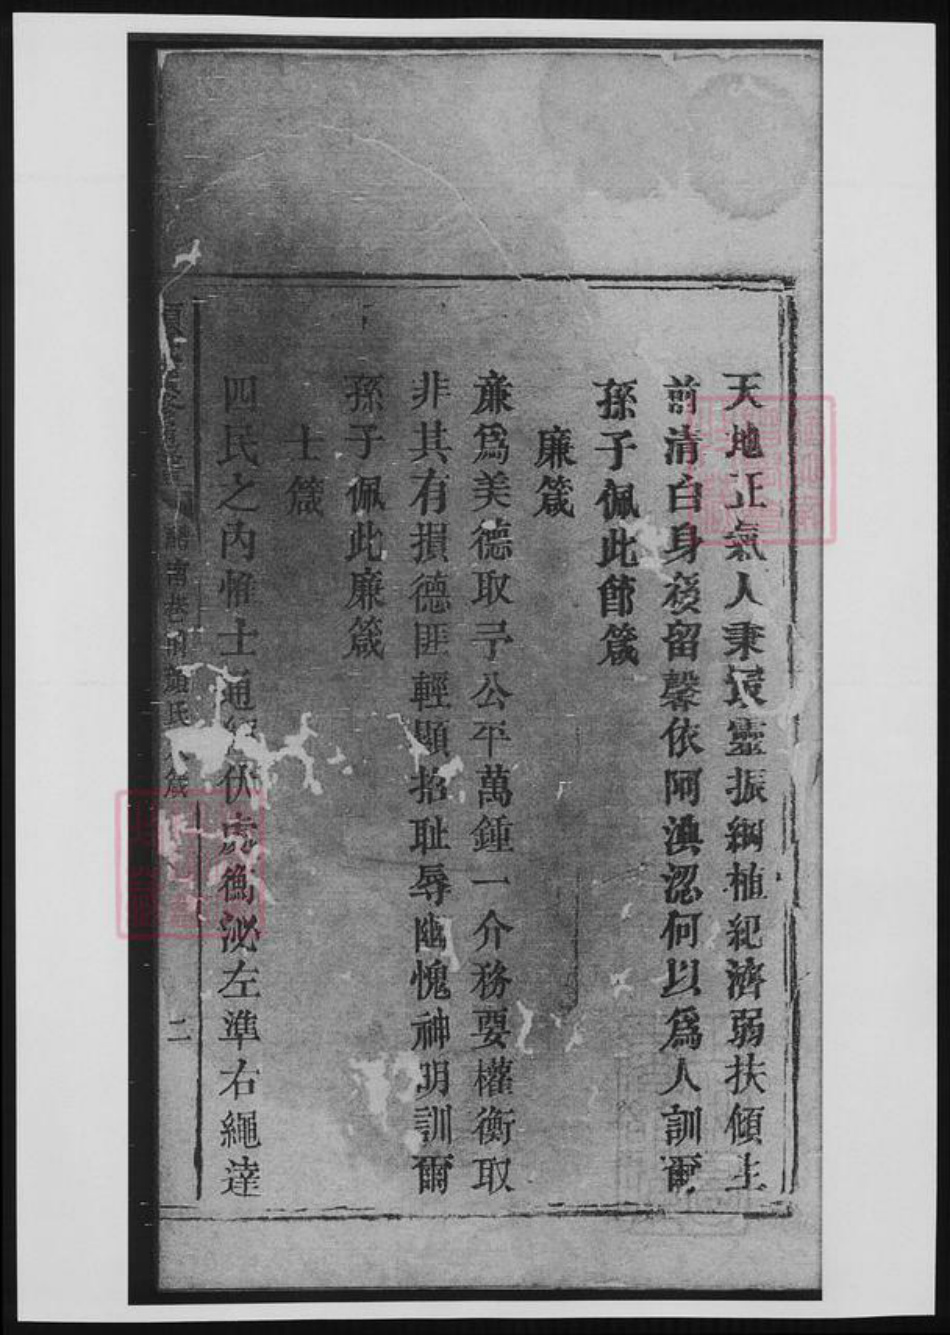 天地正氣人秉最靈振綱植紀濟弱扶傾生
前清白身後留馨依阿淟涊何以爲人訓爾
孫子佩此節箴
廉箴
亷爲美德取予公平萬鍾一介務要權衡取
非其有損德匪輕顯招耻辱幽愧神明訓爾
孫子佩此廉箴
士箴
四民之內惟士通經伏處衡泌左準右繩達
南巷 顏氏 箴 二